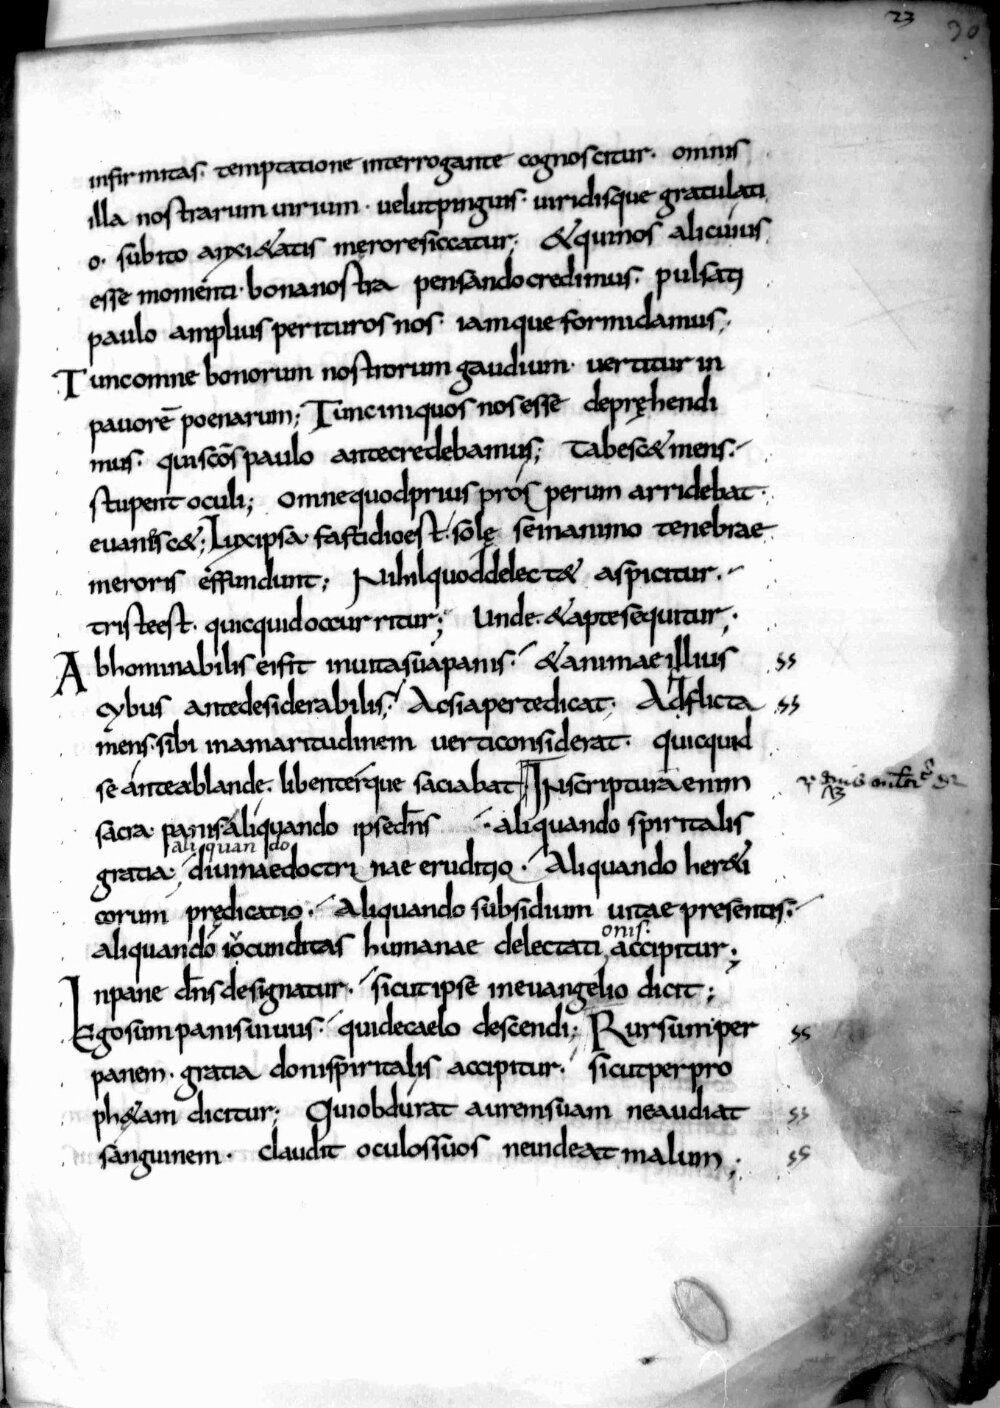 23
30
infirmitas. temptatione interrogante cognoscitur. omnis
illa nostrarum uirium. uelut pinguis. uiridisque gratulati
o. subito anxi&atis męrore siccatur; & qui nos alicuius
esse momenti. bona nostra pensando credimus. pulsati
paulo amplius perituros nos. iamque formidamus;
Tunc omne bonorum nostrorum gaudium. uertitur in
pauorē poenarum; Tunc iniquos nos esse depręhendi
mus. qui sc̄os paulo ante credebamus; Tabesc& mens.
stupent oculi; omne quod prius prosperum arridebat.
euanesc&; Lux ipsa fastidio est. solę se in animo tenebrae
meroris effundunt; Nihil quod delect& aspicitur.
triste est. quicquid occurritur; Unde. & apte sequitur;
Abhominabilis ei fit in uita sua panis. & animae illius
cybus ante desiderabilis; Ac si aperte dicat; Adflicta
mens. sibi in amaritudinem uerti considerat. quicquid
se ante a blande. libenterque saciabat; In scriptura enim
sacra panis aliquando ipse dn̄s. aliquando spiritalis
aliquando
gratia; diuinae doctrinae eruditio. Aliquando her&i
corum prędicatio. Aliquando subsidium uitae presentis.
onis.
aliquando iocunditas humanae delectati accipitur;
In pane dn̄s designatur. sicut ipse in euangelio dicit;
Ego sum panis uiuus. qui de caelo descendi; Rursum per
panem. gratia doni spiritalis accipitur. sicut per pro
ph&am dicitur; Qui obdurat aurem suam ne audiat
sanguinem. claudit oculos suos ne uideat malum;